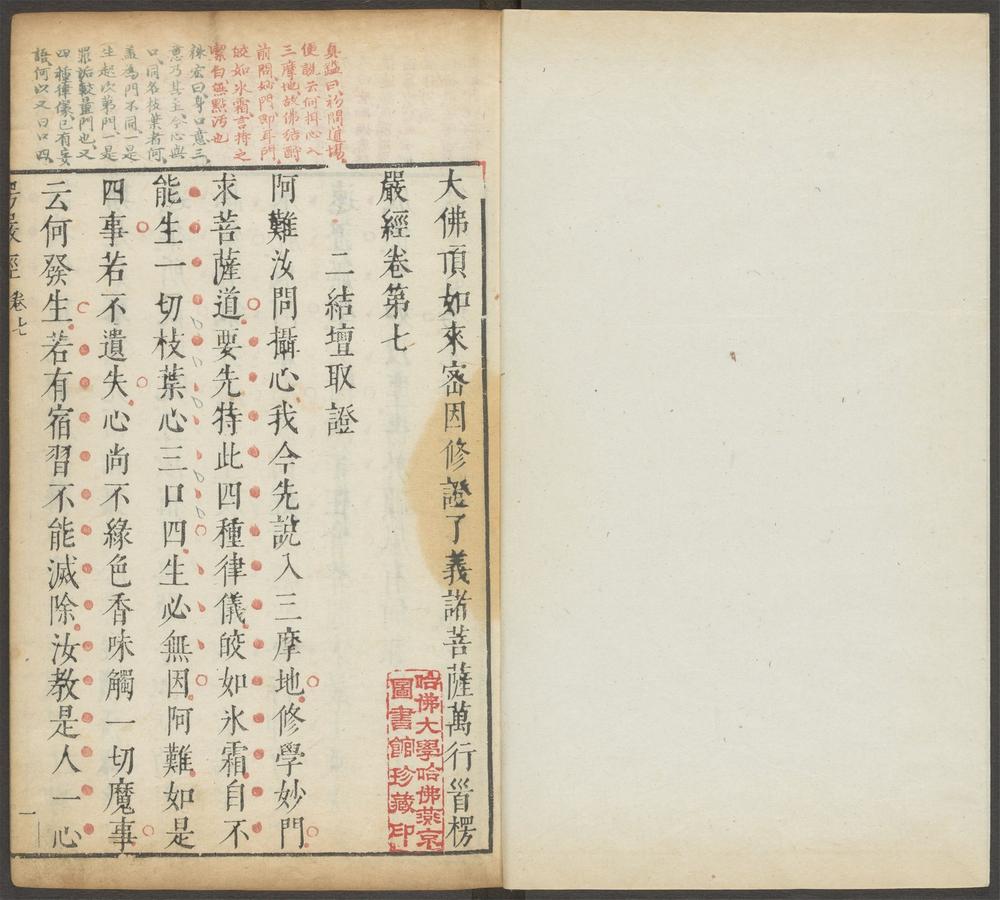 大佛頂如來密因修證了義諸菩薩萬行首楞
嚴經卷第七
二結壇取證
阿難汝問攝心我今先說入三摩地修學妙門
求菩薩道要先特此四種律儀皎如氷霜自不
能生一切枝葉心三口四生必無因阿難如是
四事若不遺失心尚不緣色香味觸一切魔事
云何發生若有宿習不能滅除汝教是人一心
卷七
一
真鑑曰初問道場
便說云何攝心入
三摩地故佛結酧
前問妙門即耳門
皎如氷霜言持之
潔白無點汚也
袾宏曰身口意三
意乃其主今心與
口同名枝葉者何
蓋為門不同一是
生起次第門一是
罪垢較量門也又
四種律儀已有妄
語何以又曰口四
哈佛大學哈佛燕京
圖書館珍藏印